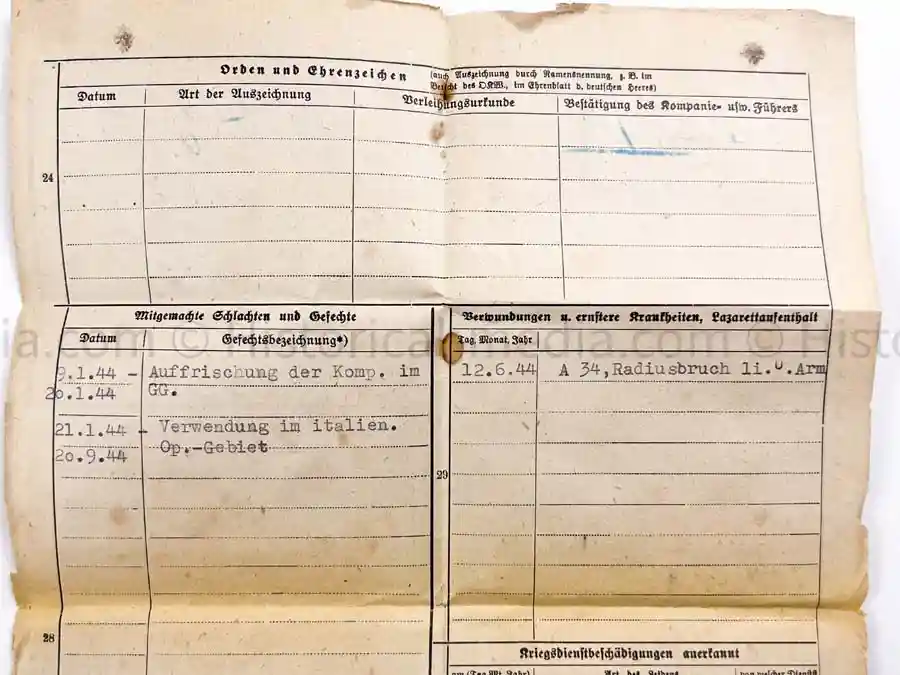 Orden und Ehrenzeichen (auch Auszeichnung durch Namensnennung, z. B. im
Bericht des OKW., im Ehrenblatt d. deutschen Heeres)
Datum Art der Auszeichnung Verleihungsurkunde Bestätigung des Kompanie- usw. Führers
24
Mitgemachte Schlachten und Gefechte
Datum Gefechtsbezeichnung*)
9.1.44 - Auffrischung der Komp. im
20.1.44 GG.
21.1.44 - Verwendung im italien.
20.9.44 Op.-Gebiet
28
Verwundungen u. ernstere Krankheiten, Lazarettaufenthalt
Tag, Monat, Jahr
12.6.44 A 34,Radiusbruch li.U.Arm
29
Kriegsdienstbeschädigungen anerkannt
am (Tag Mt. Jahr) Art des Leidens von welcher Dienstst
ia.com © Historicalmedia.com © Histo